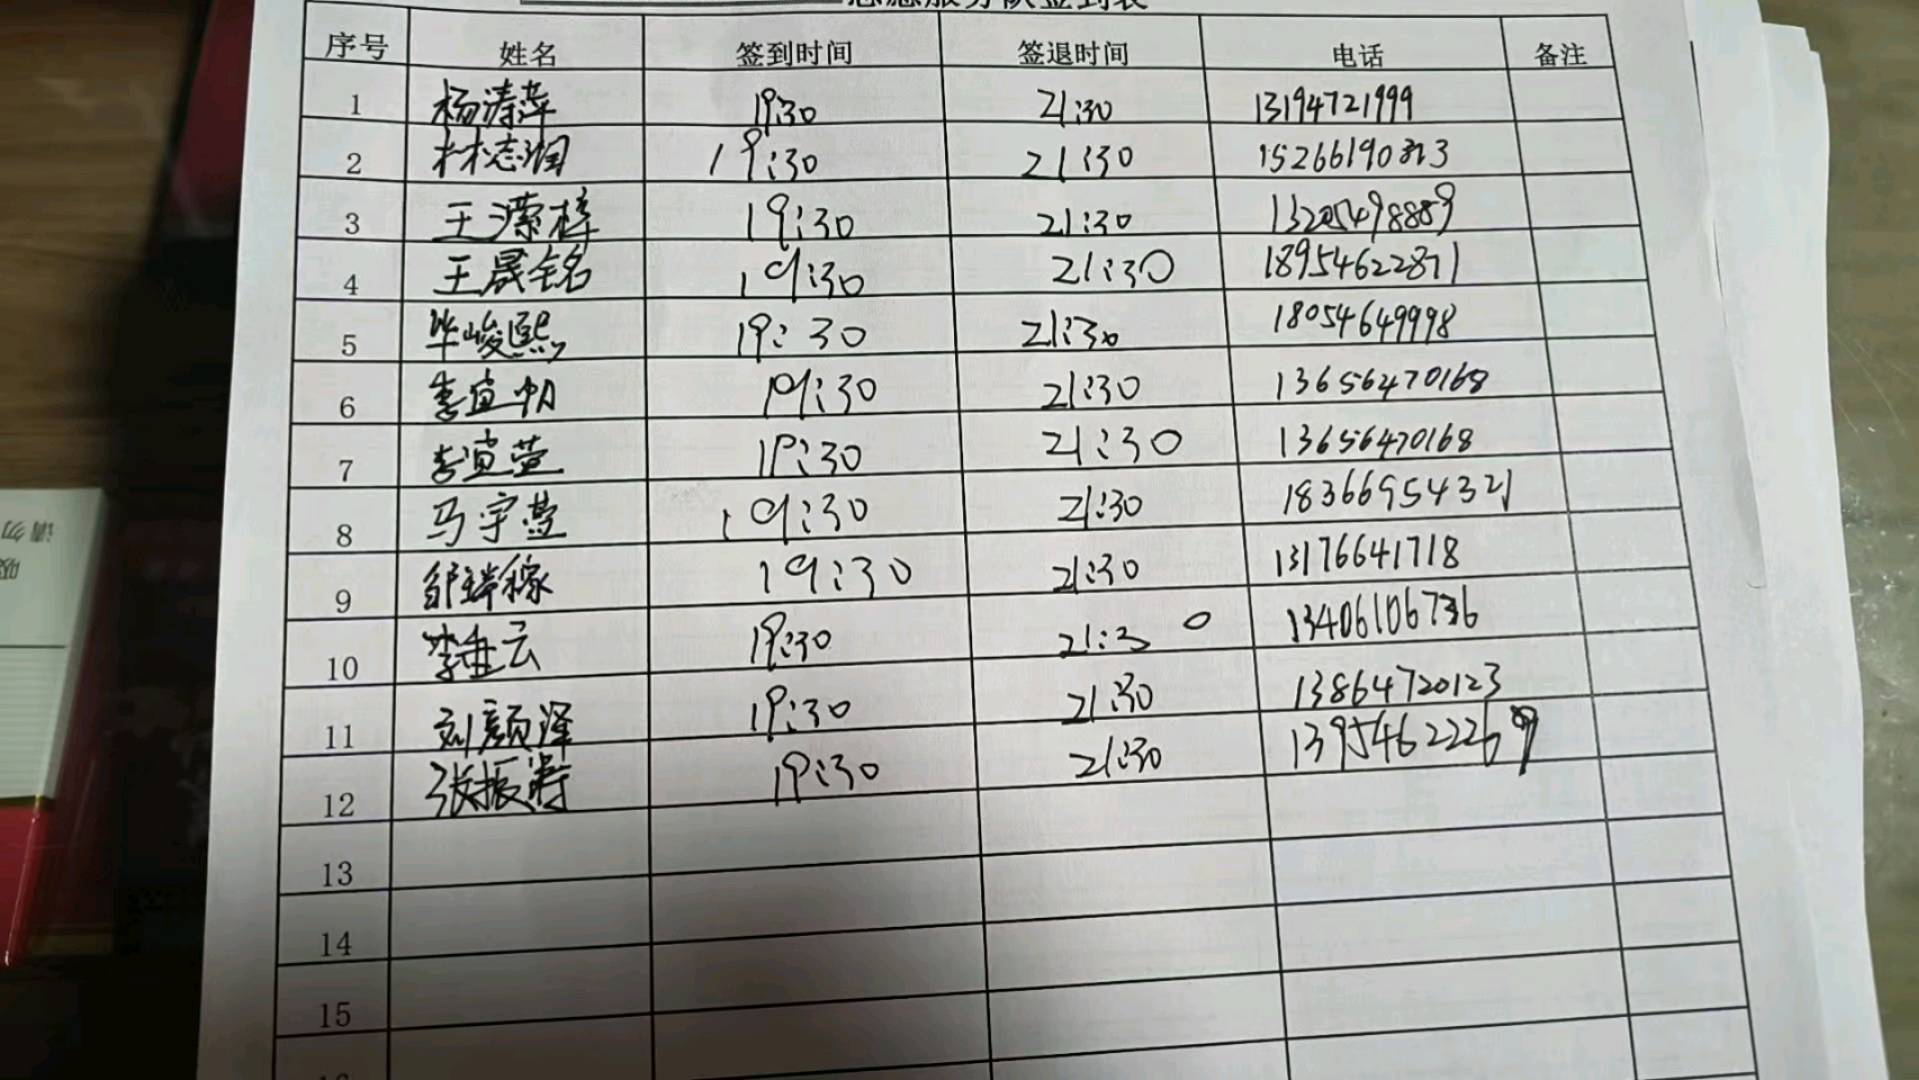 志愿服务队签到表
序号 姓名 签到时间 签退时间 电话 备注
1 杨涛萍 19:30 21:30 13194721999
2 林志润 19:30 21:30
3 王潆梓 19:30 21:30 13205498889
4 王晟铭 19:30 21:30 18954622871
5 毕峻熙 19:30 21:30 18054649998
6 李宜帆 19:30 21:30 13656470168
7 李宜萱 19:30 21:30 13656470168
8 马宇萱 19:30 21:30 18366954321
9 邹稼 19:30 21:30 13176641718
10 李亜云 19:30 21:30
11 刘颜泽 19:30 21:30 13864720123
12 张振涛 19:30 21:30
13
14
15
请勿
吸